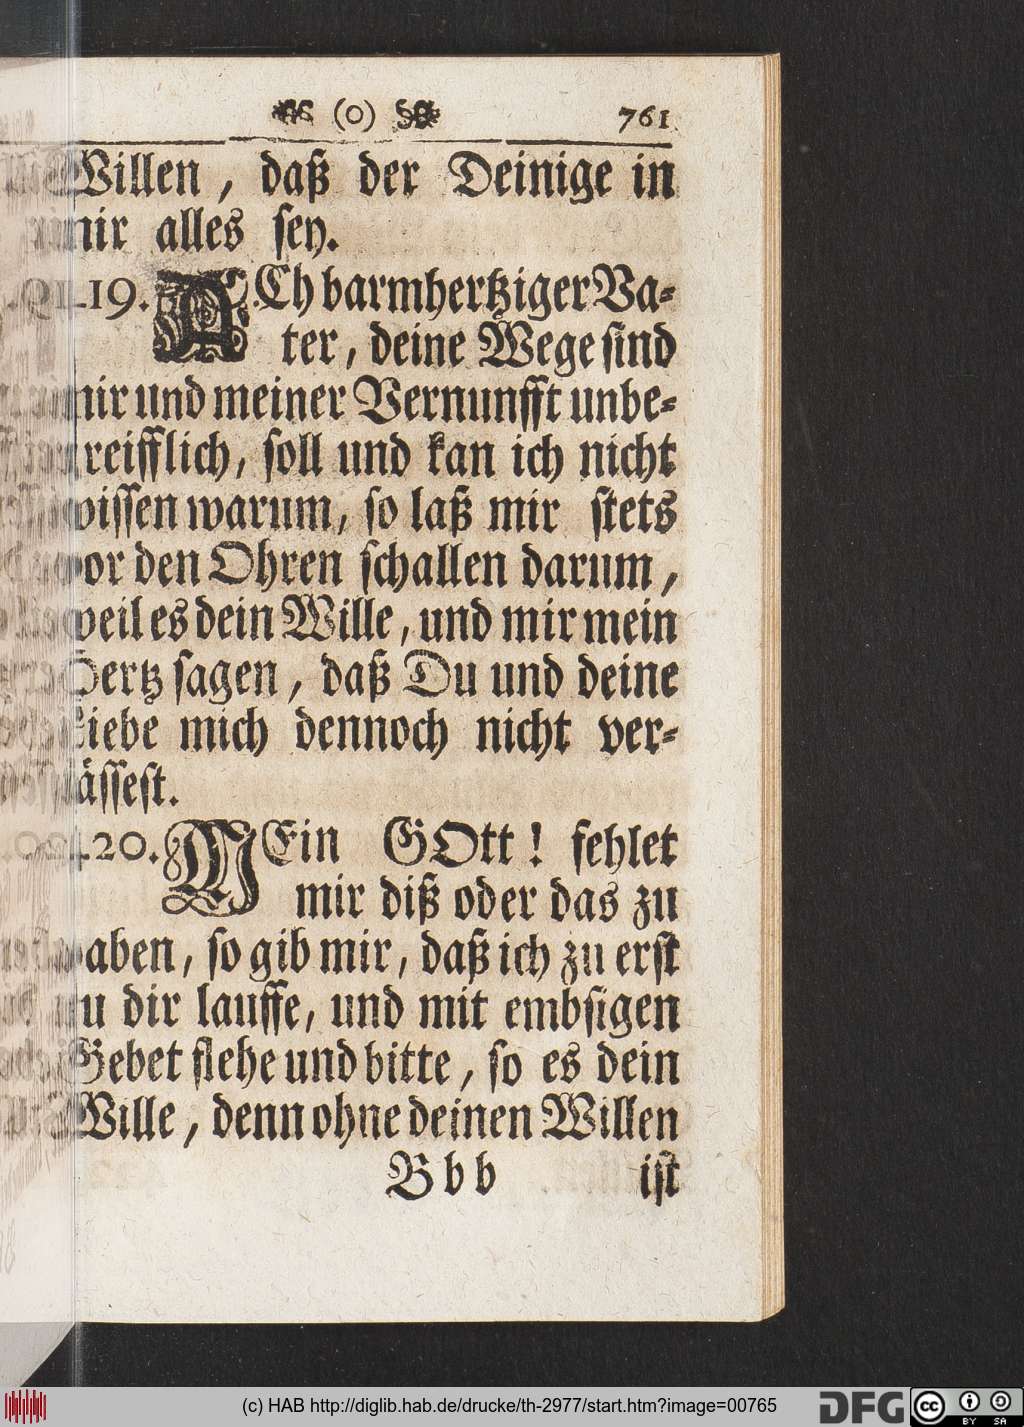 (o) 761
Willen, daß der Deinige in
mir alles sey.
19. ACh barmhertziger Va-
ter, deine Wege sind
mir und meiner Vernunfft unbe-
greifflich, soll und kan ich nicht
wissen warum, so laß mir stets
vor den Ohren schallen darum,
weil es dein Wille, und mir mein
Hertz sagen, daß Du und deine
Liebe mich dennoch nicht ver-
lässest.
20. MEin GOtt! fehlet
mir diß oder das zu
haben, so gib mir, daß ich zu erst
zu dir lauffe, und mit embsigen
Gebet flehe und bitte, so es dein
Wille, denn ohne deinen Willen
Bbb ist
(c) HAB http://diglib.hab.de/drucke/th-2977/start.htm?image=00765
DFG
cc BY SA